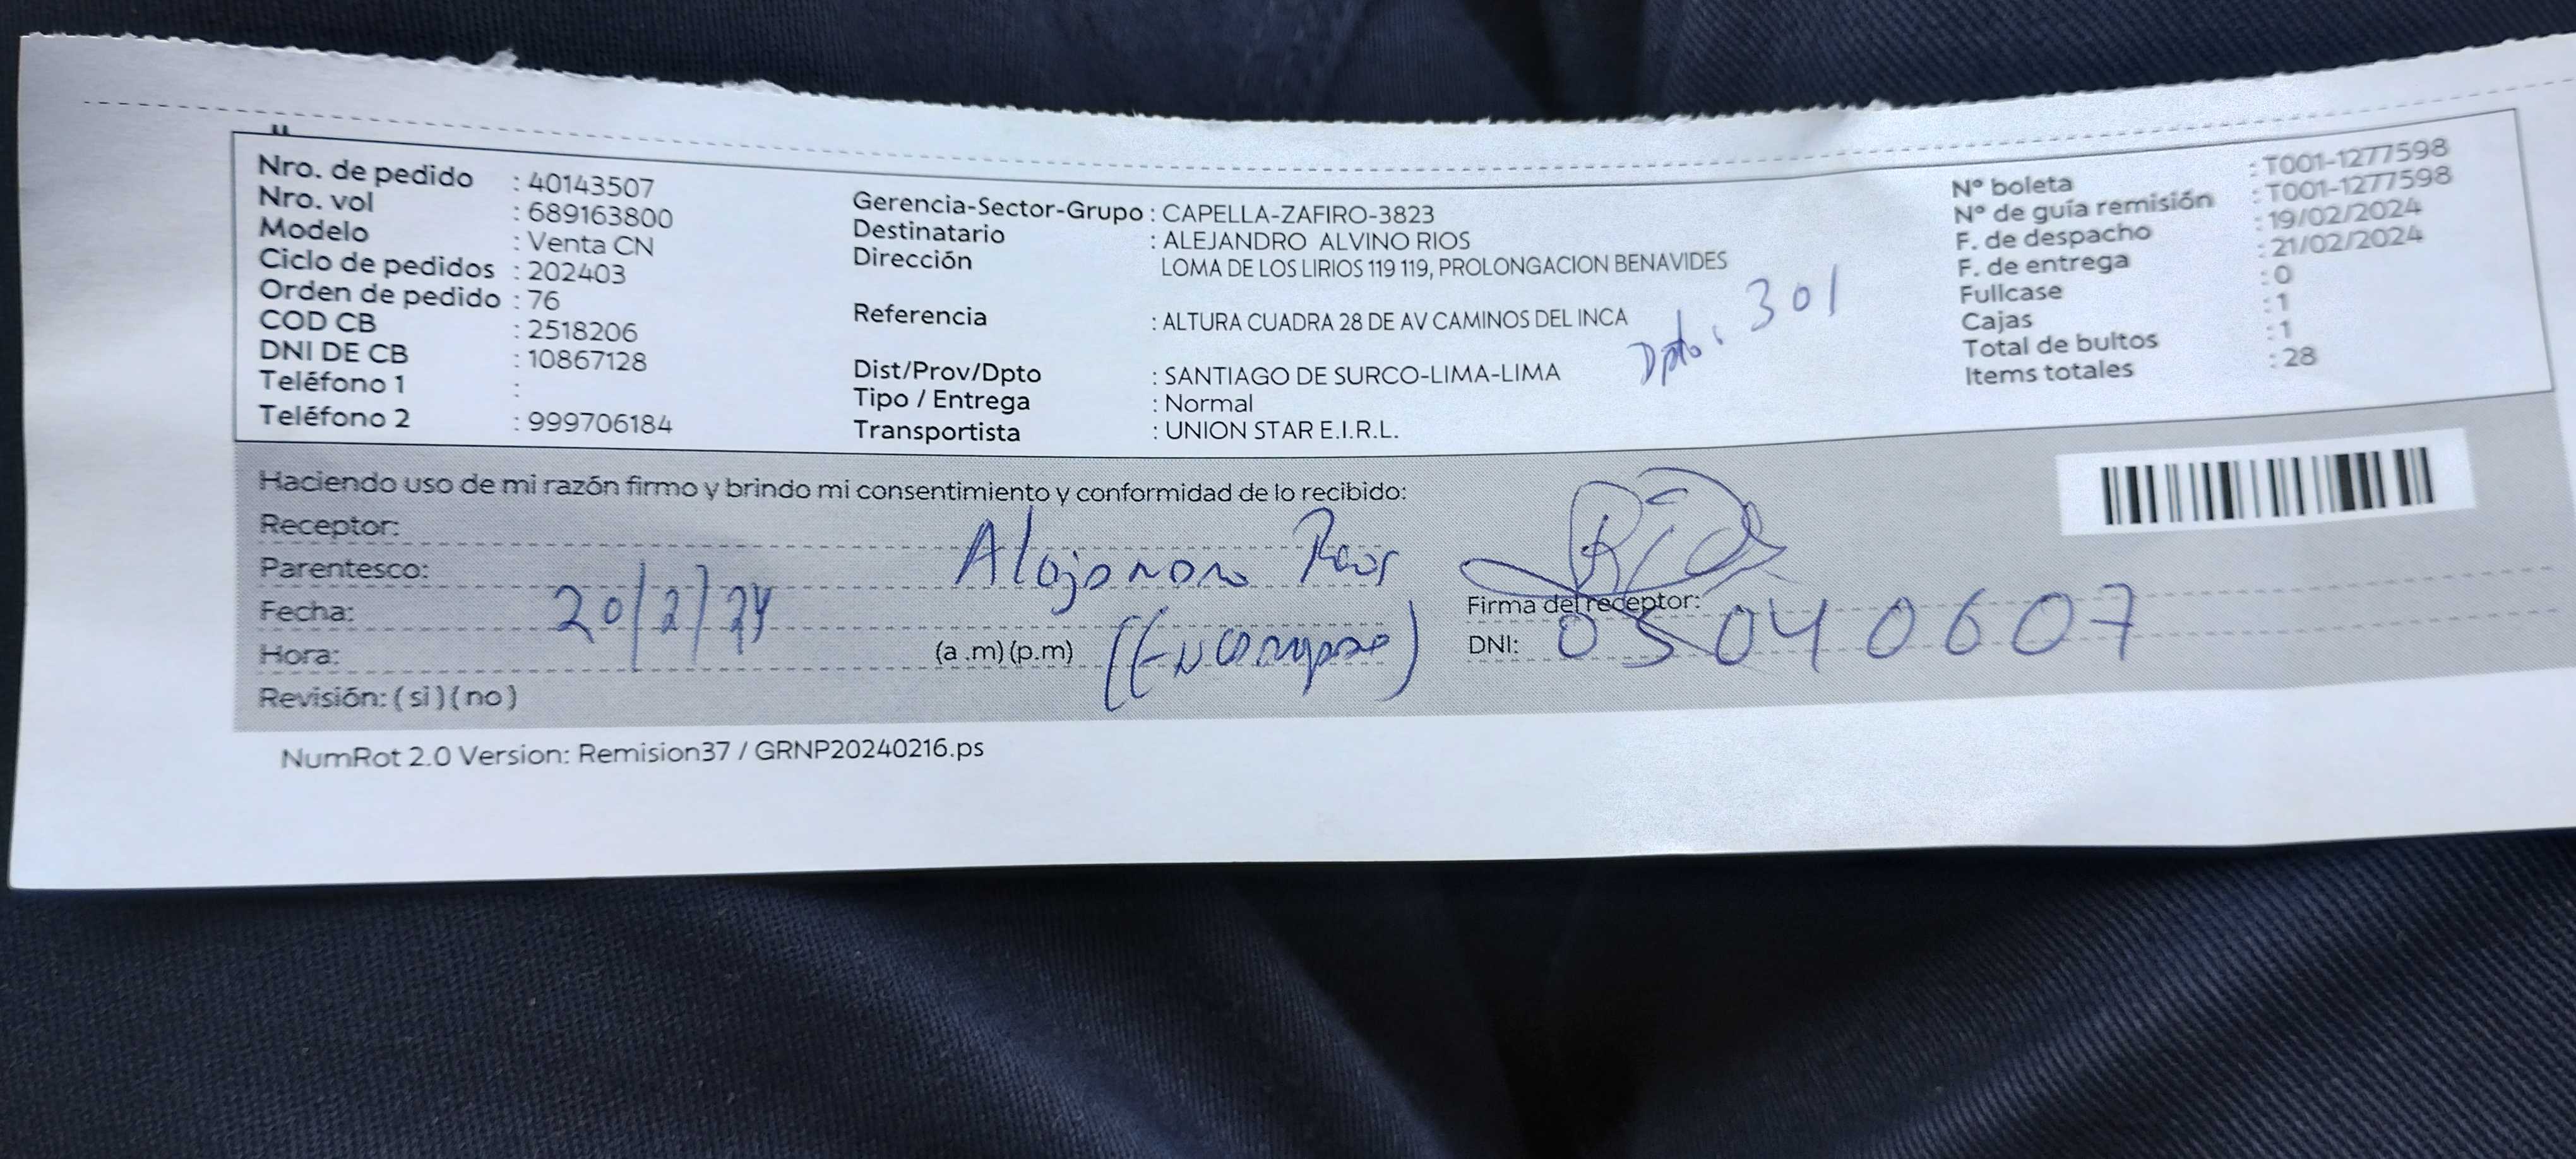 Nro. de pedido : 40143507
Nro. vol : 689163800
Modelo : Venta CN
Ciclo de pedidos : 202403
Orden de pedido : 76
COD CB : 2518206
DNI DE CB : 10867128
Teléfono 1 :
Teléfono 2 : 999706184
Gerencia-Sector-Grupo : CAPELLA-ZAFIRO-3823
Destinatario : ALEJANDRO ALVINO RIOS
Dirección LOMA DE LOS LIRIOS 119 119, PROLONGACION BENAVIDES
Referencia : ALTURA CUADRA 28 DE AV CAMINOS DEL INCA
Dpto: 301
Dist/Prov/Dpto : SANTIAGO DE SURCO-LIMA-LIMA
Tipo / Entrega : Normal
Transportista : UNION STAR E.I.R.L.
N° boleta : T001-1277598
N° de guía remisión : T001-1277598
F. de despacho : 19/02/2024
F. de entrega : 21/02/2024
Fullcase : 0
Cajas : 1
Total de bultos : 1
Items totales : 28
Haciendo uso de mi razón firmo y brindo mi consentimiento y conformidad de lo recibido:
Receptor:
Parentesco:
Fecha: 20/2/24
Hora: (a .m) (p.m)
Revisión: ( si ) ( no )
Firma del receptor:
DNI: 05040607
NumRot 2.0 Version: Remision37 / GRNP20240216.ps